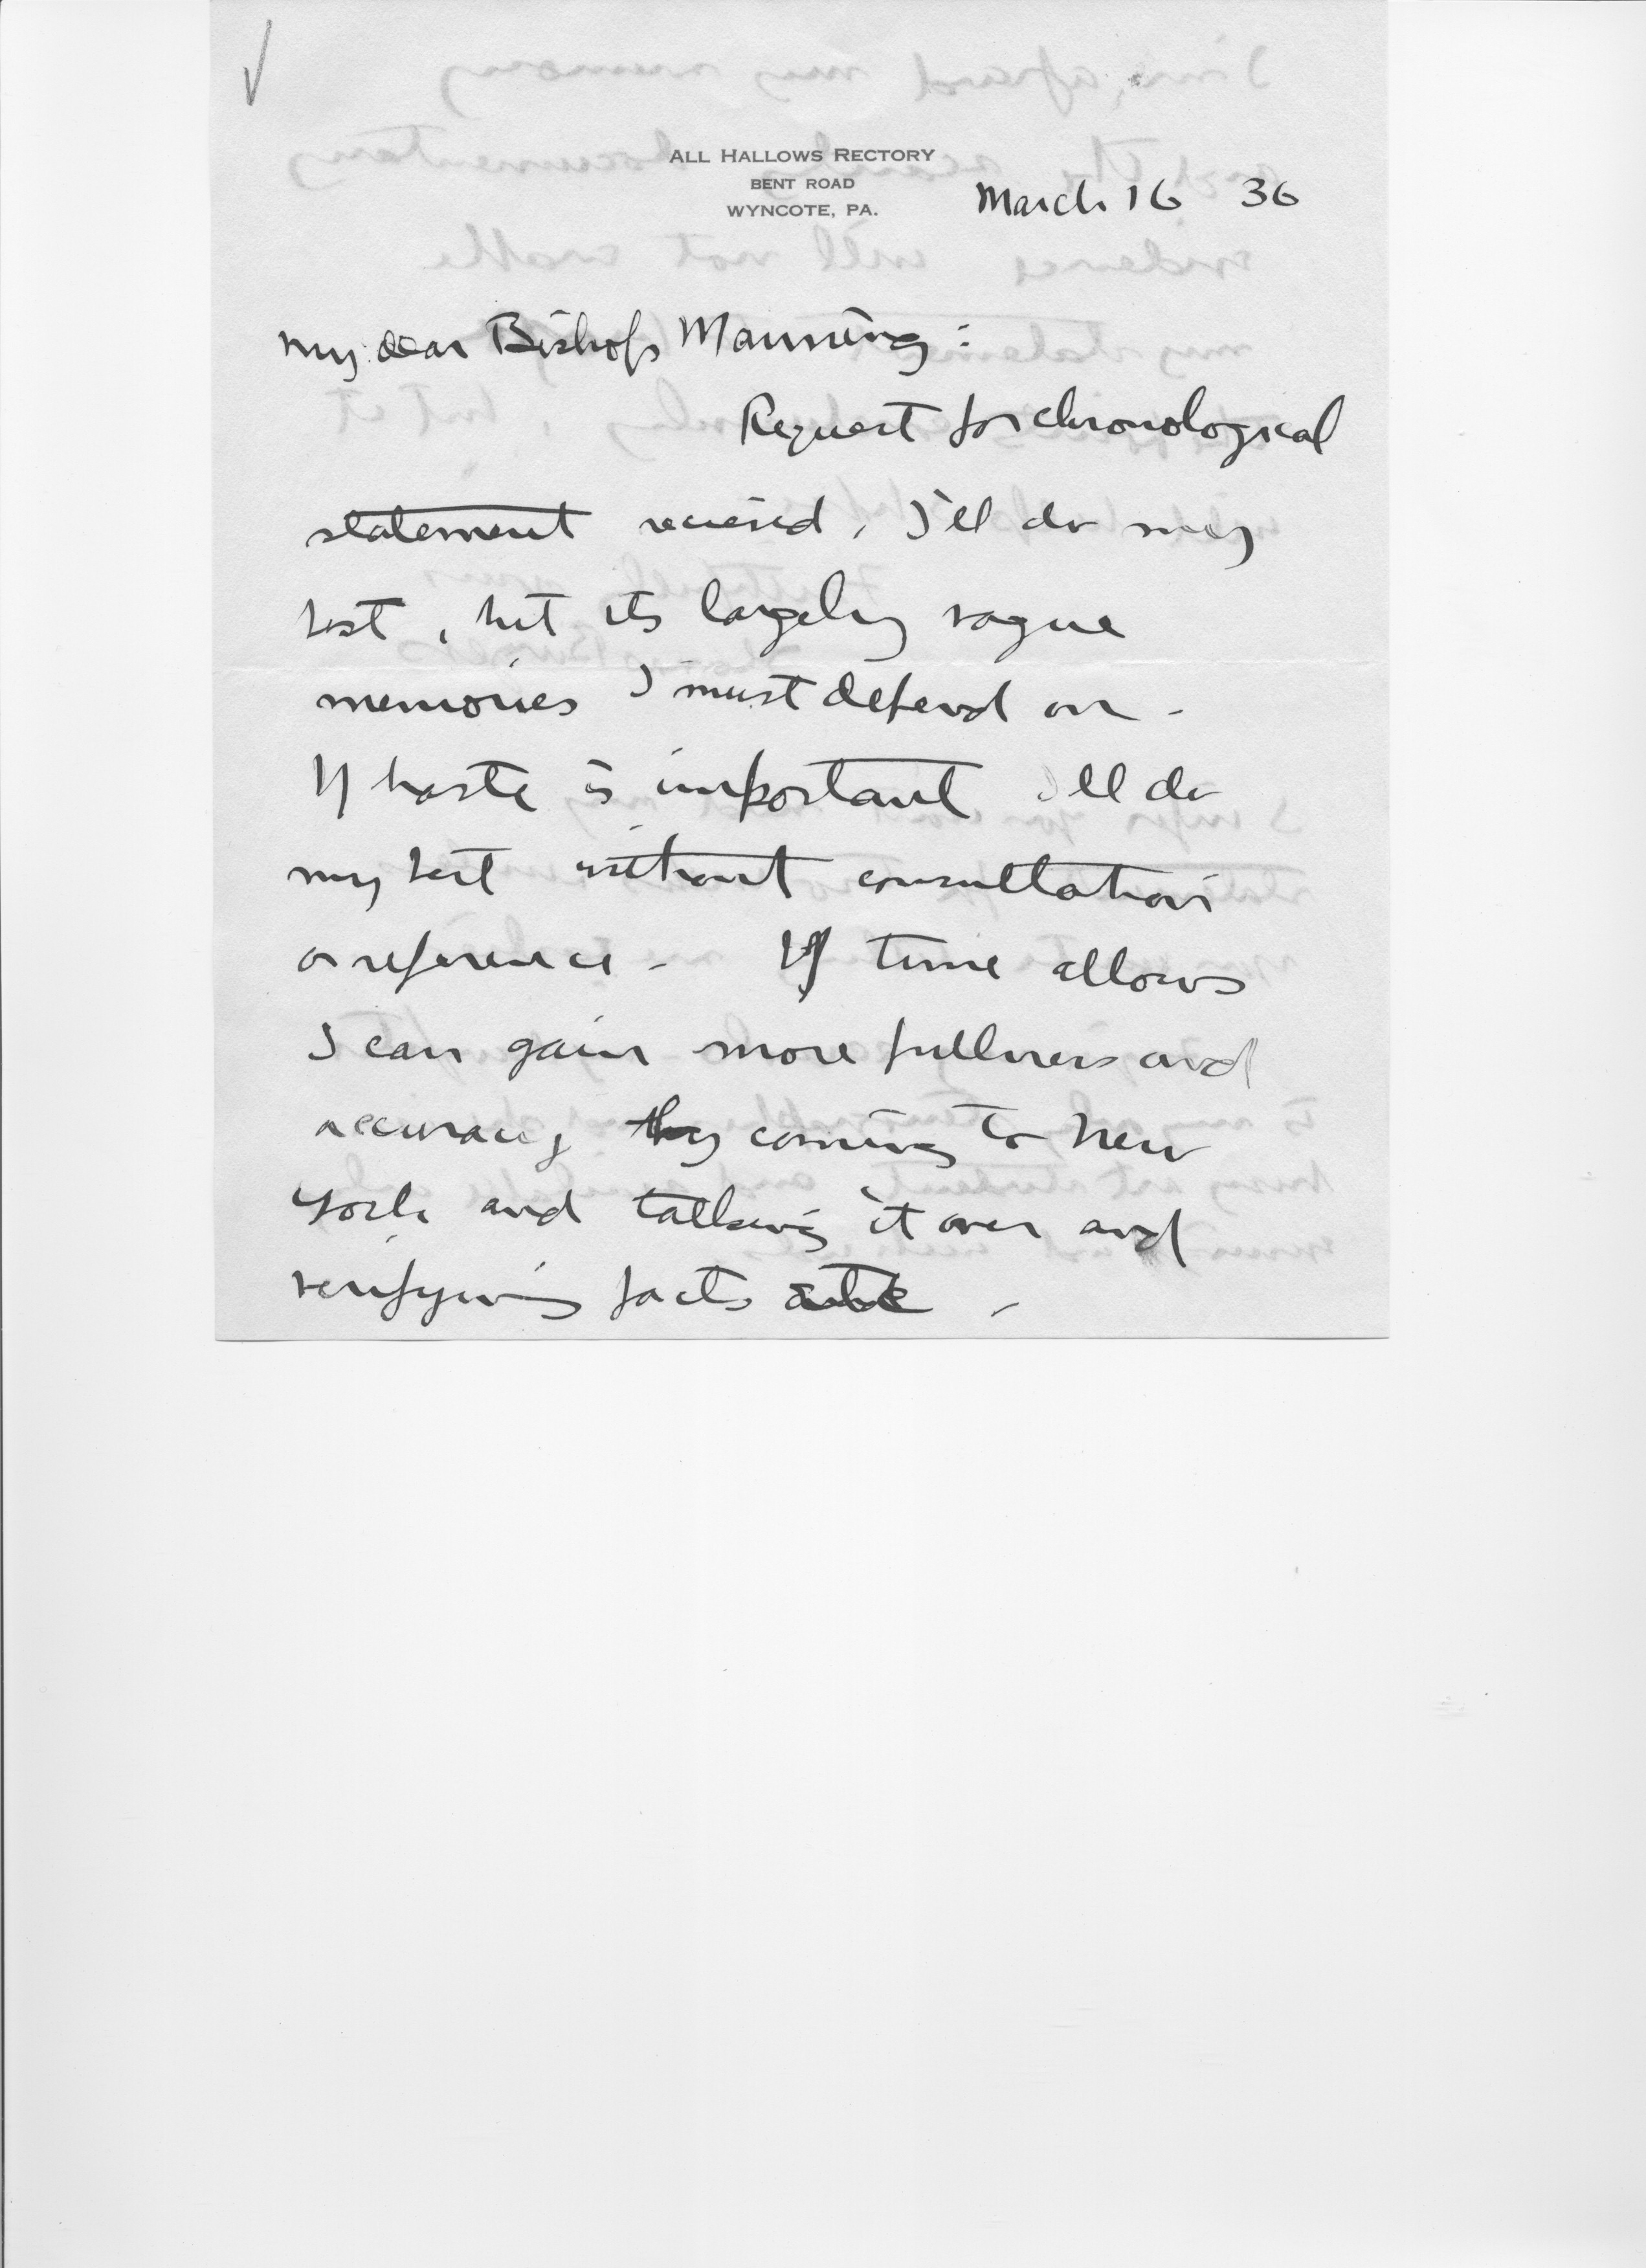 ALL HALLOWS RECTORY
BENT ROAD
WYNCOTE, PA.
March 16 36
My dear Bishop Manning:
Request for chronological
statement received, I'll do my
best, but its largely vague
memories I must depend on -
If haste is important I'll do
my best without consultation
or reference - If time allows
I can gain more fullness and
accuracy by coming to New
York and talking it over and
verifying facts -